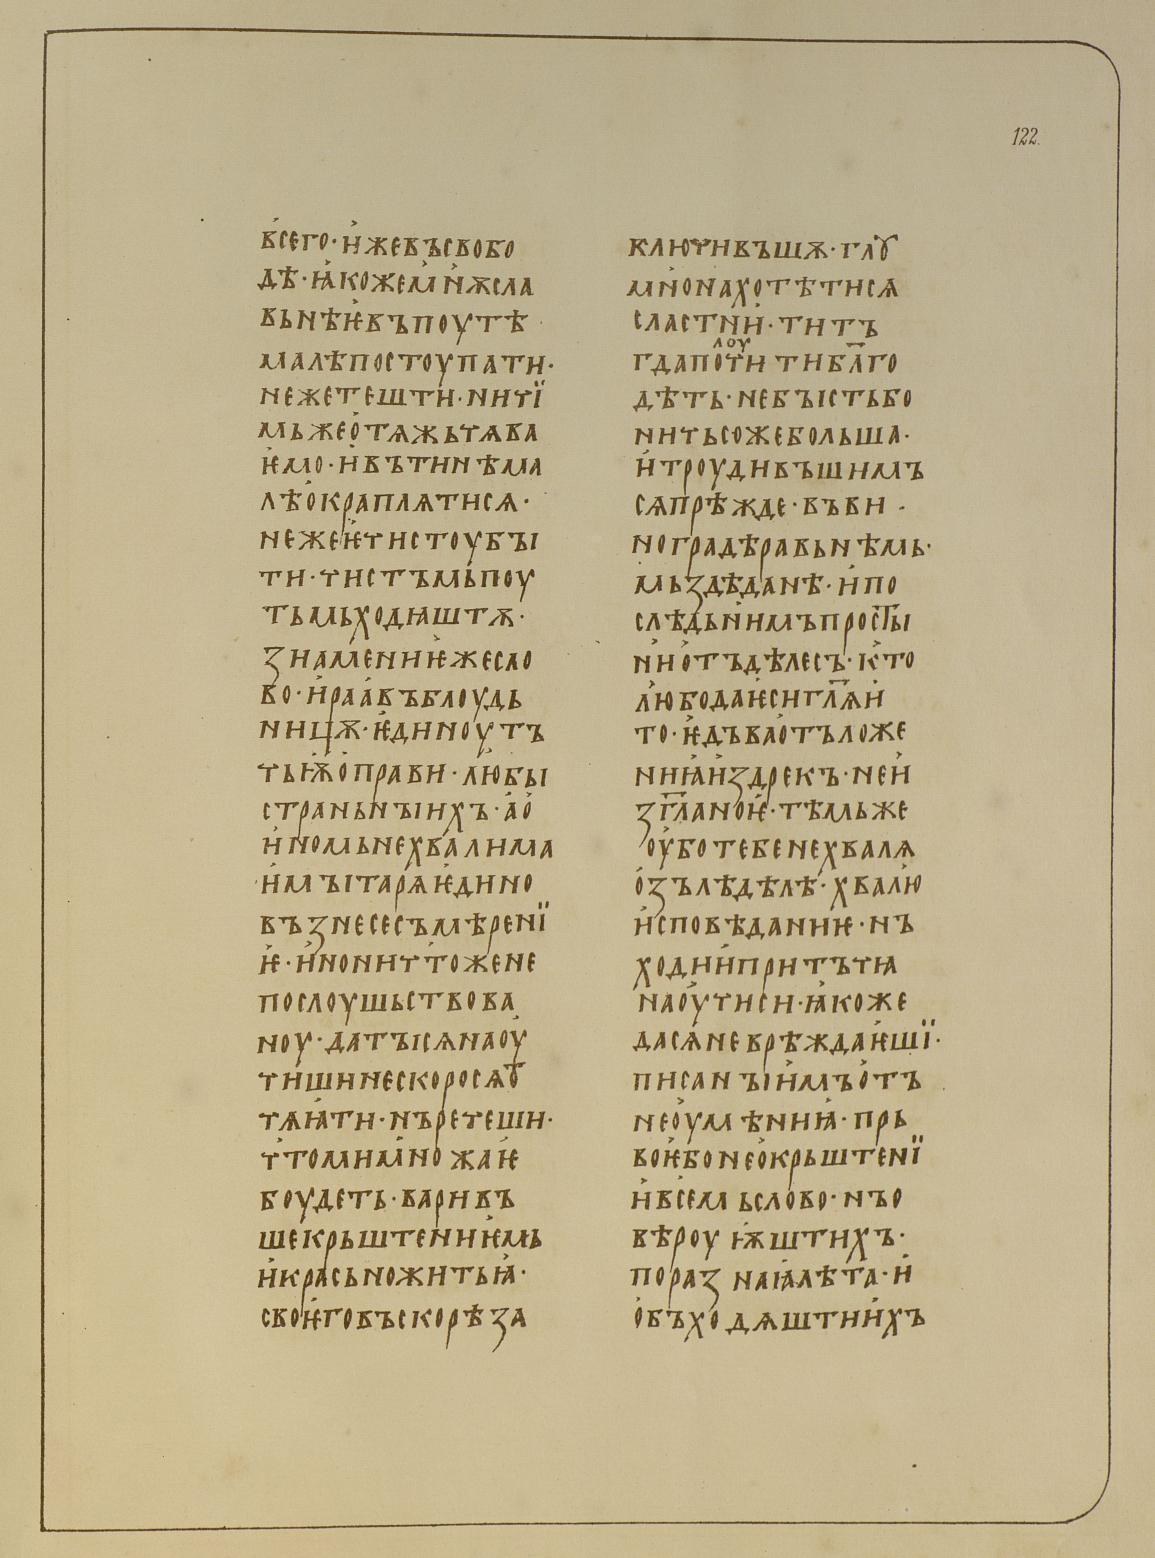 122.
в́сего· и҆жевъсвобо
дѣ· ꙗ҆кожем́и҆ѫсла
вьнѣѥ҆въпоутѣ
малѣпостоупати·
нежетешти· ничї
мьжео҆тѧжьчѧва
ѥ҆мо· и҆вътинѣма
лѣо҆краплѧтисѧ·
нежеѥ҆чистоубꙑ
ти· чистъмьпоу
тьмьходѩштѫ·
знамениѥ҆жесло
во· и҆раа҆въблоудь
ницѫ· ѥ҆диноутъ
тьѭ҆о҆прави· лю҆бꙑ
страньнꙑихъ· а҆о҆
и҆номьнехвалима
и҆мꙑтарѧѥ҆дино
възнесесъмѣренї
ѥ҆· и҆ноничтоже не
послоушьствова
ноу· датꙑсѧнаоу҆
чишинескоросѧѹ
чѧꙗ҆ти· нъречеши·
чтомим́ножаѥ҆
боудеть· варивъ
шекрьштениѥ҆мь
и҆красьножитьꙗ҆·
своѥ҆говъскорѣза
ключивъшѫ· глѹ
м́нонахотѣтисѧ
сластии҆· титъ
гдаполоучи тибл҃го
дѣть· небꙑстьбо
ничьсожебольша·
и҆троудивъшимъ
сѧпрѣжде· въви
ноградѣравьнѣмь·
мьздѣданѣ· и҆по
слѣдьн́имъпростꙑ
нио҆тъдѣлесъ· к҆то
л́юбодаѥ҆сигл҃ѧи҆
то· ѥ҆дъвао҆тъложе
ниꙗ҆и҆здрекъ· неи҆
згл҃аноѥ҆· тѣмьже
оу҆ботебенехвалѧ
о҆зълѣдѣлѣ· хвалю҆
и҆сповѣданиѥ· нъ
ходии҆причътѩ
наоу҆чиси· ꙗ҆коже
дасѧ҆неврѣждаѥ҆шї·
писанꙑи҆мъо҆тъ
неоу҆мѣниꙗ҆· прь
воѥ҆бонео҆крьштенї
и҆всемьслово· нъо
вѣроу ѭ҆штихъ·
пораз наꙗ҆лѣта· и҆
о҆бъходѧштии҆хъ